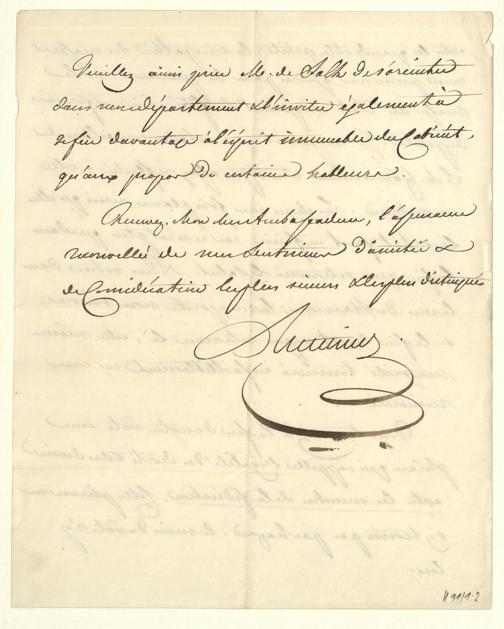 Veuillez ainsi prier M. de Salh de s'orienter
dans mon département & l'inviter également à
se fier davantage à l'esprit immuable du Cabinet,
qu'aux propos de certains hableurs.
Recevez, Mon cher Ambassadeur, l'assurance
renouvellée de mes Sentimens d'amitié &
de Considération les plus sincères & les plus distingués